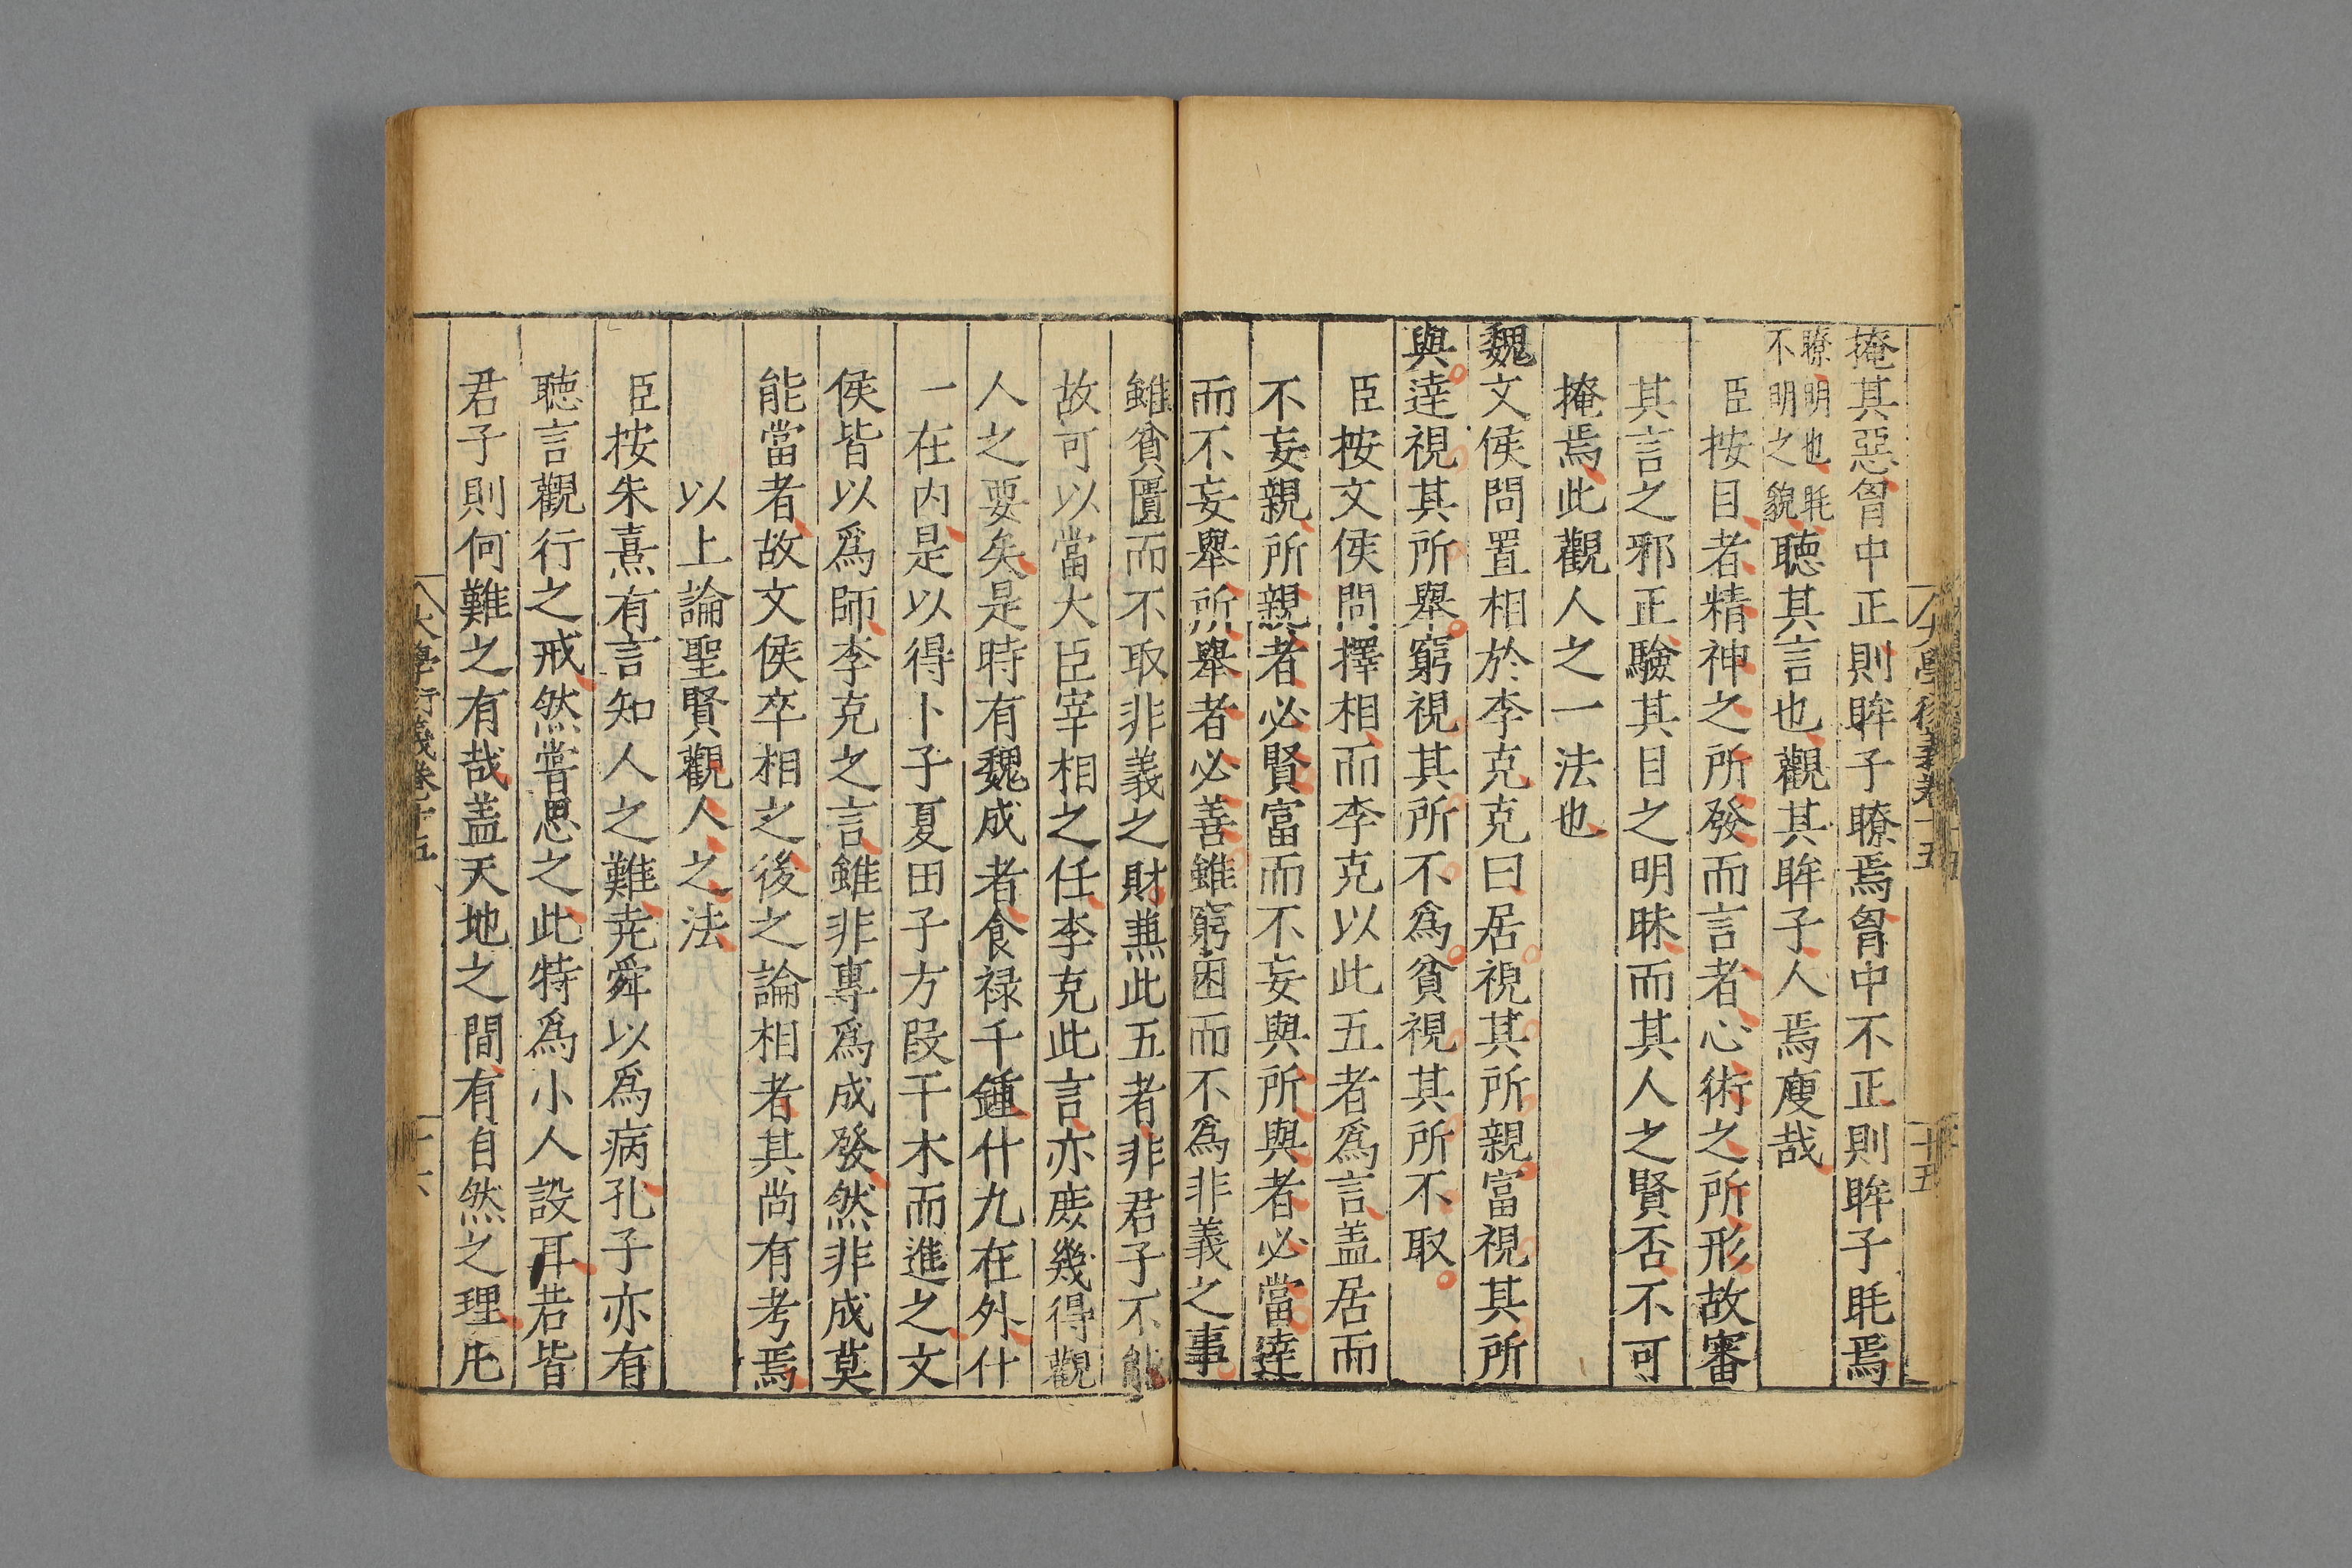 大學衍義卷十五
十五
掩其惡胷中正則眸子瞭焉胷中不正則眸子眊焉
瞭明也眊
不明之貌
聽其言也觀其眸子人焉廋哉
臣按目者精神之所發而言者心術之所形故審
其言之邪正驗其目之明昧而其人之賢否不可
掩焉此觀人之一法也
魏文侯問置相於李克克曰居視其所親富視其所
與逹視其所舉窮視其所不爲貧視其所不取
臣按文侯問擇相而李克以此五者爲言盖居而
不妄親所親者必賢富而不妄與所與者必當逹
而不妄舉所舉者必善雖窮困而不爲非義之事
雖貧匱而不取非義之財兼此五者非君子不能
故可以當大臣宰相之任李克此言亦庻幾得觀
人之要矣是時有魏成者食禄千鍾什九在外什
一在内是以得卜子夏田子方段干木而進之文
侯皆以爲師李克之言雖非專爲成發然非成莫
能當者故文侯卒相之後之論相者其尚有考焉
以上論聖賢觀人之法
臣按朱熹有言知人之難尭舜以爲病孔子亦有
聽言觀行之戒然嘗思之此特爲小人設耳若皆
君子則何難之有哉盖天地之間有自然之理凡
大學衍義卷十五
十六